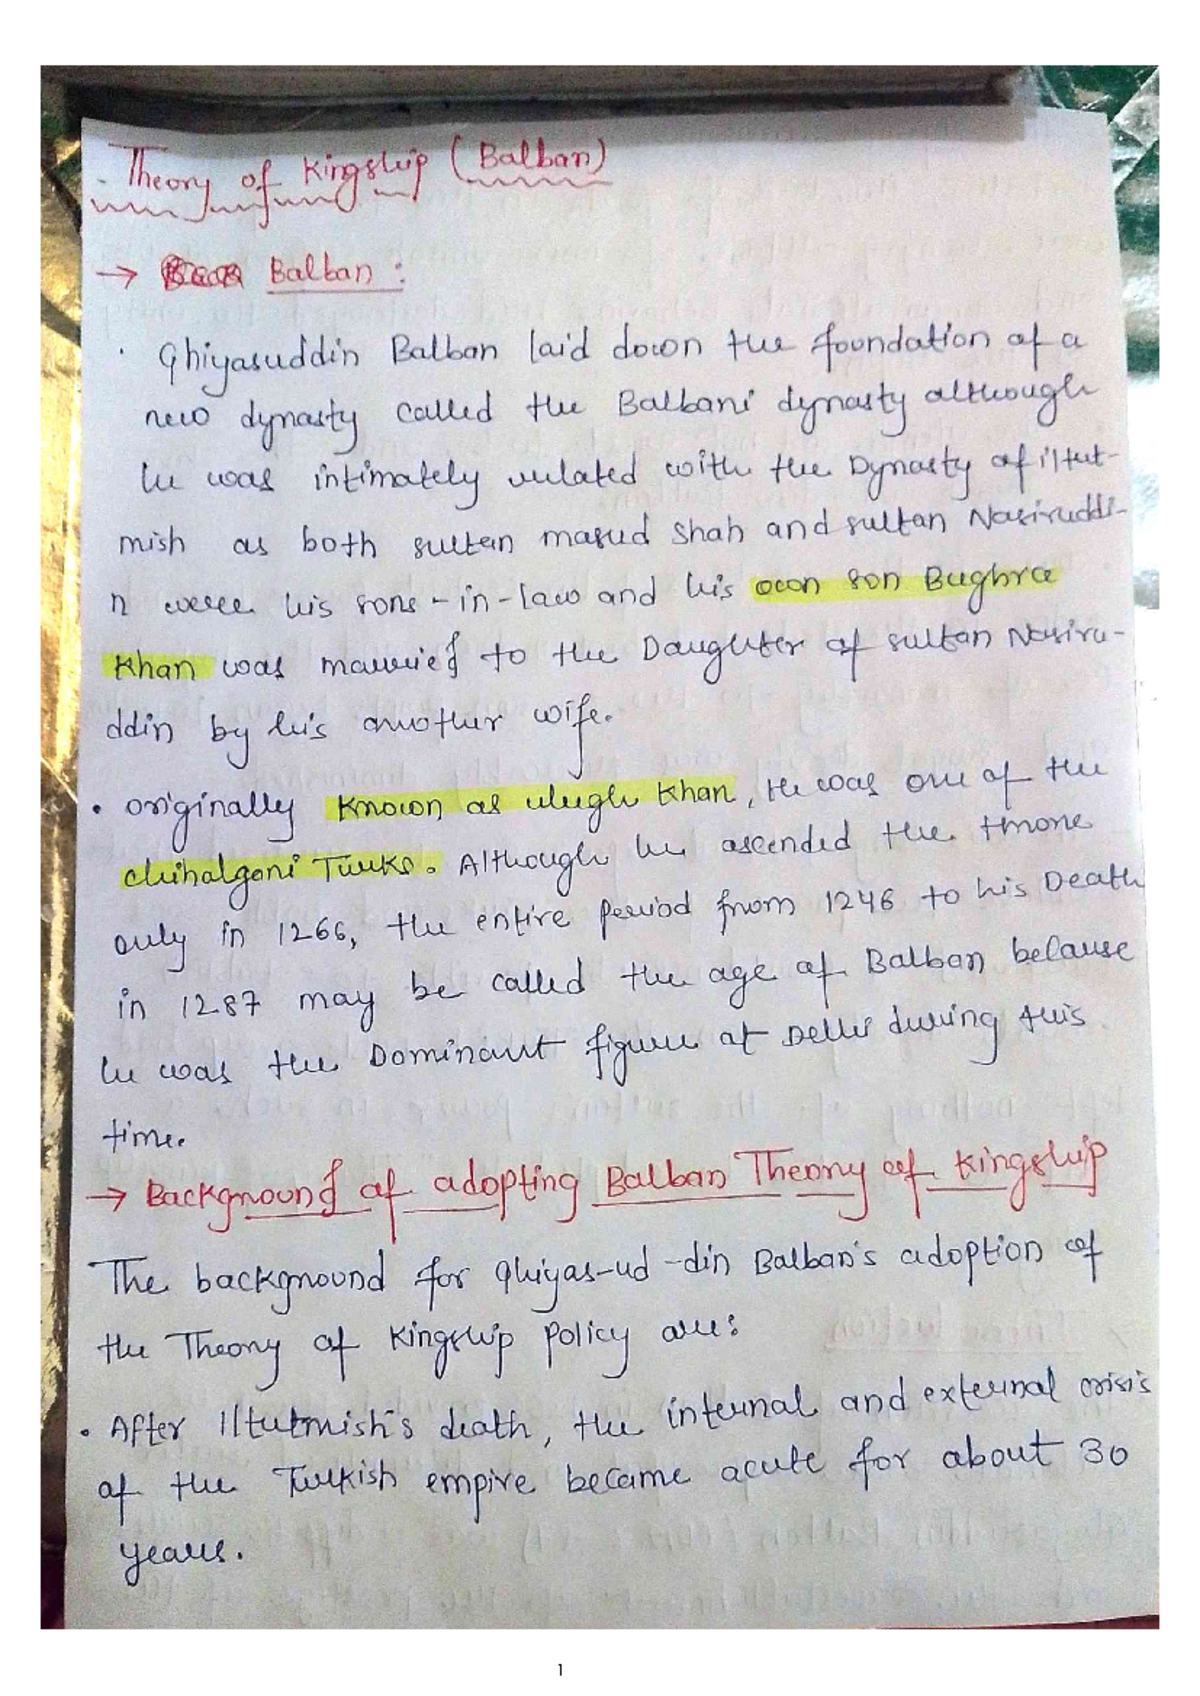 Theory of Kingship (Balban)
→ Balban :
· Ghiyasuddin Balban laid down the foundation of a
new dynasty called the Balbani dynasty although
he was intimately related with the Dynasty of iltut-
mish as both sultan masud shah and sultan Nasiruddi-
n were his sons-in-law and his own son Bughra
Khan was married to the Daughter of sultan Nasiru-
ddin by his another wife.
• originally known as ulugh Khan, He was one of the
chihalgani Turks. Although he ascended the throne
only in 1266, the entire period from 1246 to his Death
in 1287 may be called the age of Balban because
he was the Dominant figure at Delhi during this
time.
→ Background of adopting Balban Theory of Kingship
The background for Ghiyas-ud-din Balban's adoption of
the Theory of Kingship Policy are:
• After Iltutmish's death, the internal and external crisis
of the Turkish empire became acute for about 30
years.
1